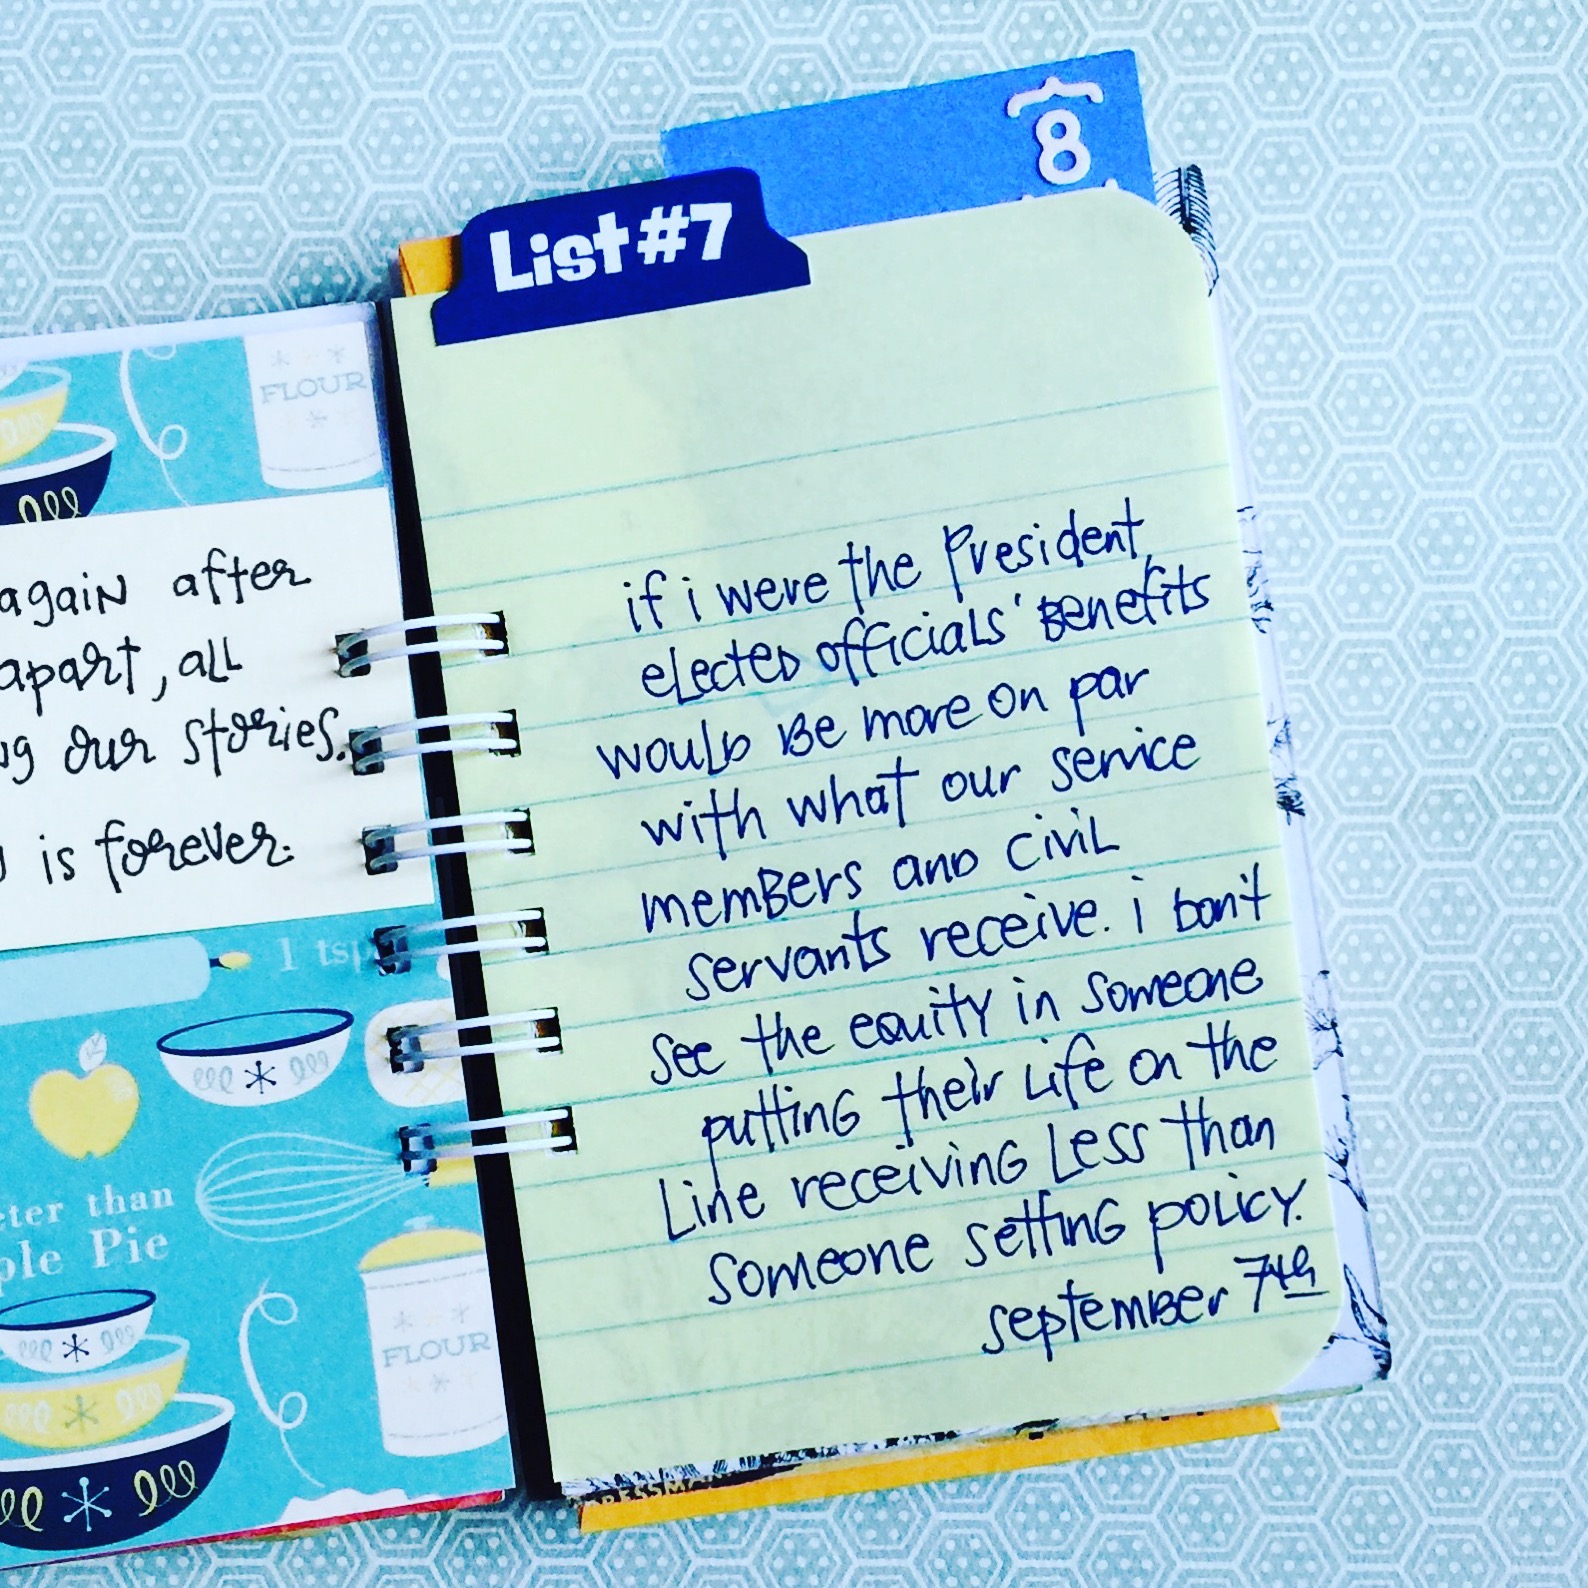 8
List #7
FLOUR
again after
apart, all
our stories.
is forever.
1 tsp
than
Pie
FLOUR
if i were the President,
elected officials' benefits
would be more on par
with what our service
members and civil
servants receive. i don't
see the equity in someone
putting their life on the
line receiving less than
someone setting policy.
september 7th